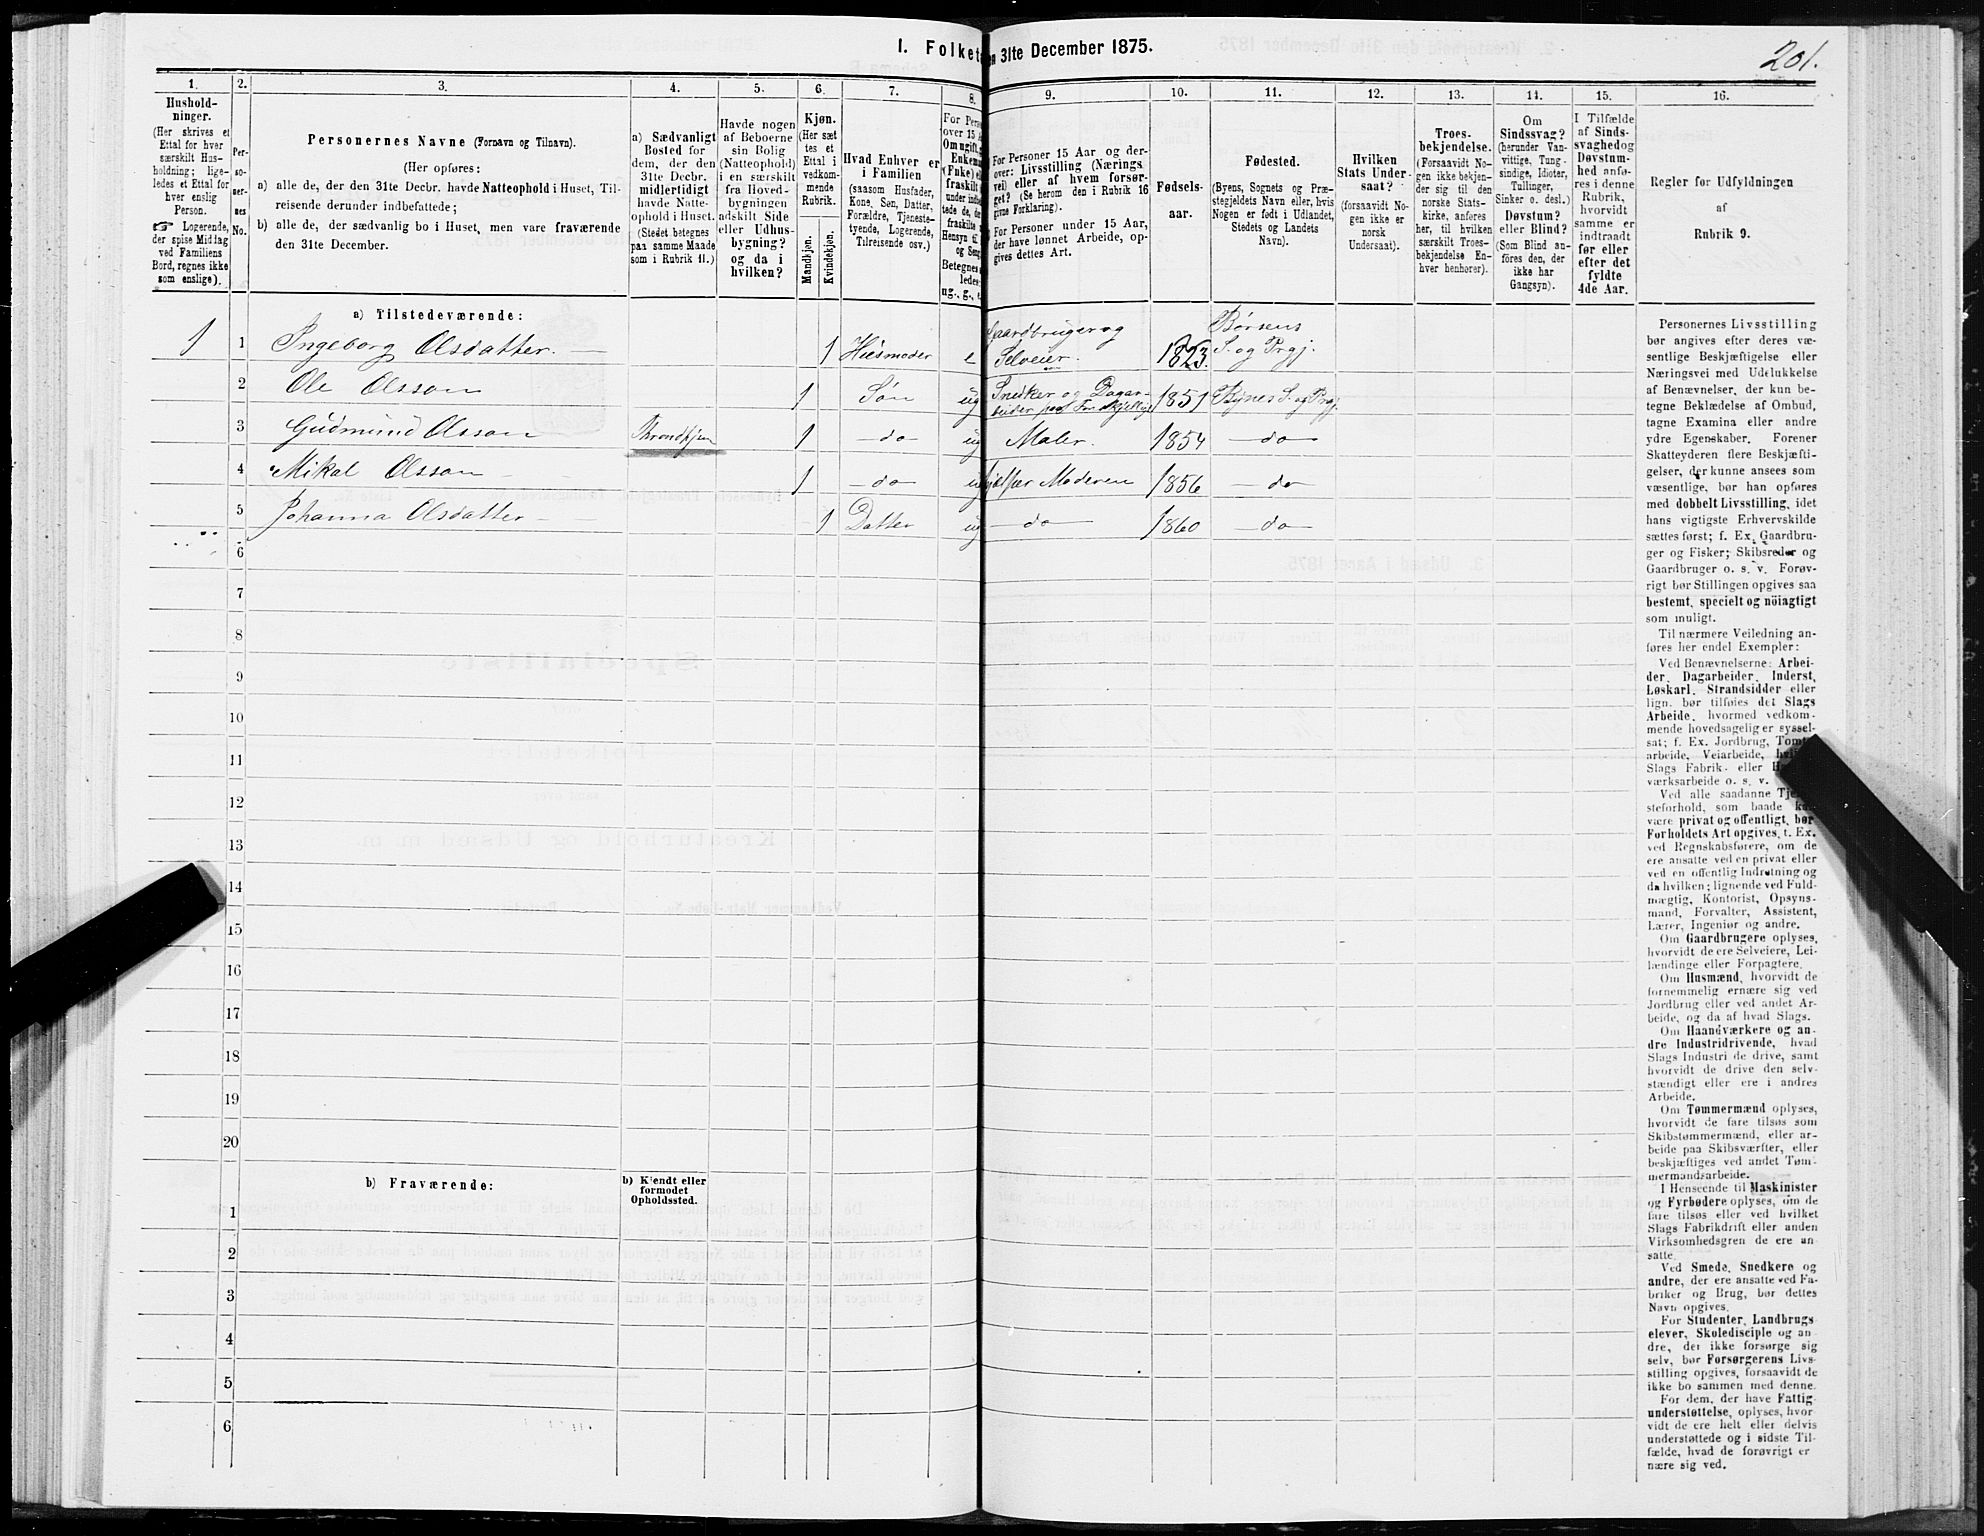 I. Folket
en 31te December 1875.
201.
1.
2.
3.
4.
5.
6.
7.
8.
9.
10.
11.
12.
13.
14.
15.
16.
Hushold-
ninger.
(Her skrives et
Ettal for hver
særskilt Hus-
holdning; lige-
ledes et Ettal for
hver enslig
Person.
☞ Logerende,
der spise Middag
ved Familiens
Bord, regnes ikke
som enslige).
Per-
soner-
nes
No.
Personernes Navne (Fornavn og Tilnavn).
(Her opføres:
a) alle de, der den 31te Decbr. havde Natteophold i Huset, Til-
reisende derunder indbefattede;
b) alle de, der sædvanlig bo i Huset, men vare fraværende
den 31te December.
a) Sædvanligt
Bosted for
dem, der den
31te Decbr.
midlertidigt
havde Natte-
ophold i Huset.
(Stedet betegnes
paa samme Maade
som i Rubrik 11.)
Havde nogen
af Beboerne
sin Bolig
(Natteophold)
i en særskilt
fra Hoved-
bygningen
adskilt Side
eller Udhus-
bygning?
og da i
hvilken?
Kjøn.
(Her sæt
tes et
Ettal i
vedkom-
mende
Rubrik.
Mandkjøn.
Kvindekjøn.
Hvad Enhver er
i Familien
(saasom Husfader,
Kone, Søn, Datter,
Forældre, Tjeneste-
tyende, Logerende,
Tilreisende osv.)
For Pers
over 15 A
Om ugift,
Enkem
(Enke) e
fraskilt
under indb
tede de, d
fraskilte
Hensyn ti
og Seng
Betegnes
ledes
ug., g., e
For Personer 15 Aar og der-
over: Livsstilling (Nærings
vei) eller af hvem forsør-
get? (Se herom den i Rubrik 16
givne Forklaring).
For Personer under 15 Aar,
der have lønnet Arbeide, op-
gives dettes Art.
Fødsels-
aar.
Fødested.
(Byens, Sognets og Præ-
stegjeldets Navn eller, hvis
Nogen er født i Udlandet,
Stedets og Landets
Navn).
Hvilken
Stats Under-
saat?
(forsaavidt No-
gen ikke er
norsk
Undersaat).
Troes-
bekjendelse.
(Forsaavidt No-
gen ikke bekjen-
der sig til den
norske Stats-
kirke, anføres
her, til hvilken
særskilt Troes-
bekjendelse En-
hver henhører).
Om
Sindssvag?
(herunder Van-
vittige, Tung-
sindige, Idioter,
Tullinger,
Sinker o. desl.)
Døvstum?
eller Blind?
(Som Blind an-
føres den, der
ikke har
Gangsyn).
I Tilfælde
af Sinds-
svaghedog
Døvstum-
hed anfø-
res i denne
Rubrik,
hvorvidt
samme er
indtraadt
før eller
efter det
fyldte
4de Aar.
Regler for Udfyldningen
af
Rubrik 9.
a) Tilstedeværende:
1 1 Ingeborg Olsdatter. 1 Husmoder e Gaardbruger og Selveier. 1823. Børsens S. og Prgj.
2 Ole Olsson 1 Søn ug Snedker og Dagar-
beider paa 1851 Bynes S. og Prgj.
3 Gudmund Olsson Throndhjem 1 do ug Maler. 1854 do
4 Mikal Olsson 1 do ug Hjælper Moderen 1856 do
5 Johanna Olsdatter 1 Datter ug do 1860 do
6
7
8
9
10
11
12
13
14
15
16
17
18
19
20
b) Fraværende:
b) Kjendt eller
formodet
Opholdssted.
1
2
3
4
5
6
Personernes Livsstilling
bør angives efter deres væ-
sentlige Beskjæftigelse eller
Næringsvei med Udelukkelse
af Benævnelser, der kun be-
tegne Beklædelse af Ombud,
tagne Examina eller andre
ydre Egenskaber. Forener
Skatteyderen flere Beskjæfti-
gelser, der kunne ansees som
væsentlige, bør han opføres
med dobbelt Livsstilling, idet
hans vigtigste Erhvervskilde
sættes først; f. Ex. Gaardbru-
ger og Fisker; Skibsreder og
Gaardbruger o. s. v. Forøv-
rigt bør Stillingen opgives saa
bestemt, specielt og nöiagtigt
som muligt.
Til nærmere Veiledning an-
føres her endel Exempler:
Ved Benævnelserne: Arbei-
der, Dagarbeider, Inderst,
Løskarl, Strandsidder eller
lign. bør tilføies det Slags
Arbeide, hvormed vedkom-
mende hovedsagelig er syssel-
sat; f. Ex. Jordbrug, Tomt
arbeide, Veiarbeide, hvil
Slags Fabrik- eller H
værksarbeide o. s. v.
Ved alle saadanne Tje
steforhold, som baade k
være privat og offentligt, bør
Forholdets Art opgives, t. Ex.
ved Regnskabsførere, om de
ere ansatte ved en privat eller
ved en offentlig Indretning og
da hvilken; lignende ved Fuld-
mægtig, Kontorist, Opsyns-
mand, Forvalter, Assistent,
Lærer, Ingeniør og andre.
Om Gaardbrugere oplyses,
hvorvidt de ere Selveiere, Lei-
lændinge eller Forpagtere.
Om Husmænd, hvorvidt de
fornemmelig ernære sig ved
Jordbrug eller ved andet Ar-
beide, og da af hvad Slags.
Om Haandværkere og an-
dre Industridrivende, hvad
Slags Industri de drive, samt
hvorvidt de drive den selv-
stændigt eller ere i andres
Arbeide.
Om Tømmermænd oplyses,
hvorvidt de fare tilsøs som
Skibstømmermænd, eller ar-
beide paa Skibsværfter, eller
beskjæftiges ved andet Tøm-
mermandsarbeide.
I Henseende til Maskinister
og Fyrbødere oplyses, om de
fare tilsøs eller ved hvilket
Slags Fabrikdrift eller anden
Virksomhedsgren de ere an-
satte.
Ved Smede, Snedkere og
andre, der ere ansatte ved Fa-
briker og Brug, bør dettes
Navn opgives.
For Studenter, Landbrugs-
elever, Skoledisciple og an-
dre, der ikke forsørge sig
selv, bør Forsørgerens Livs-
stilling opgives, forsaavidt de
ikke bo sammen med denne.
For dem, der have Fattig-
understøttelse, oplyses, hvor-
vidt de ere helt eller delvis
understøttede og i sidste Til-
fælde, hvad de forøvrigt er-
nære sig ved.